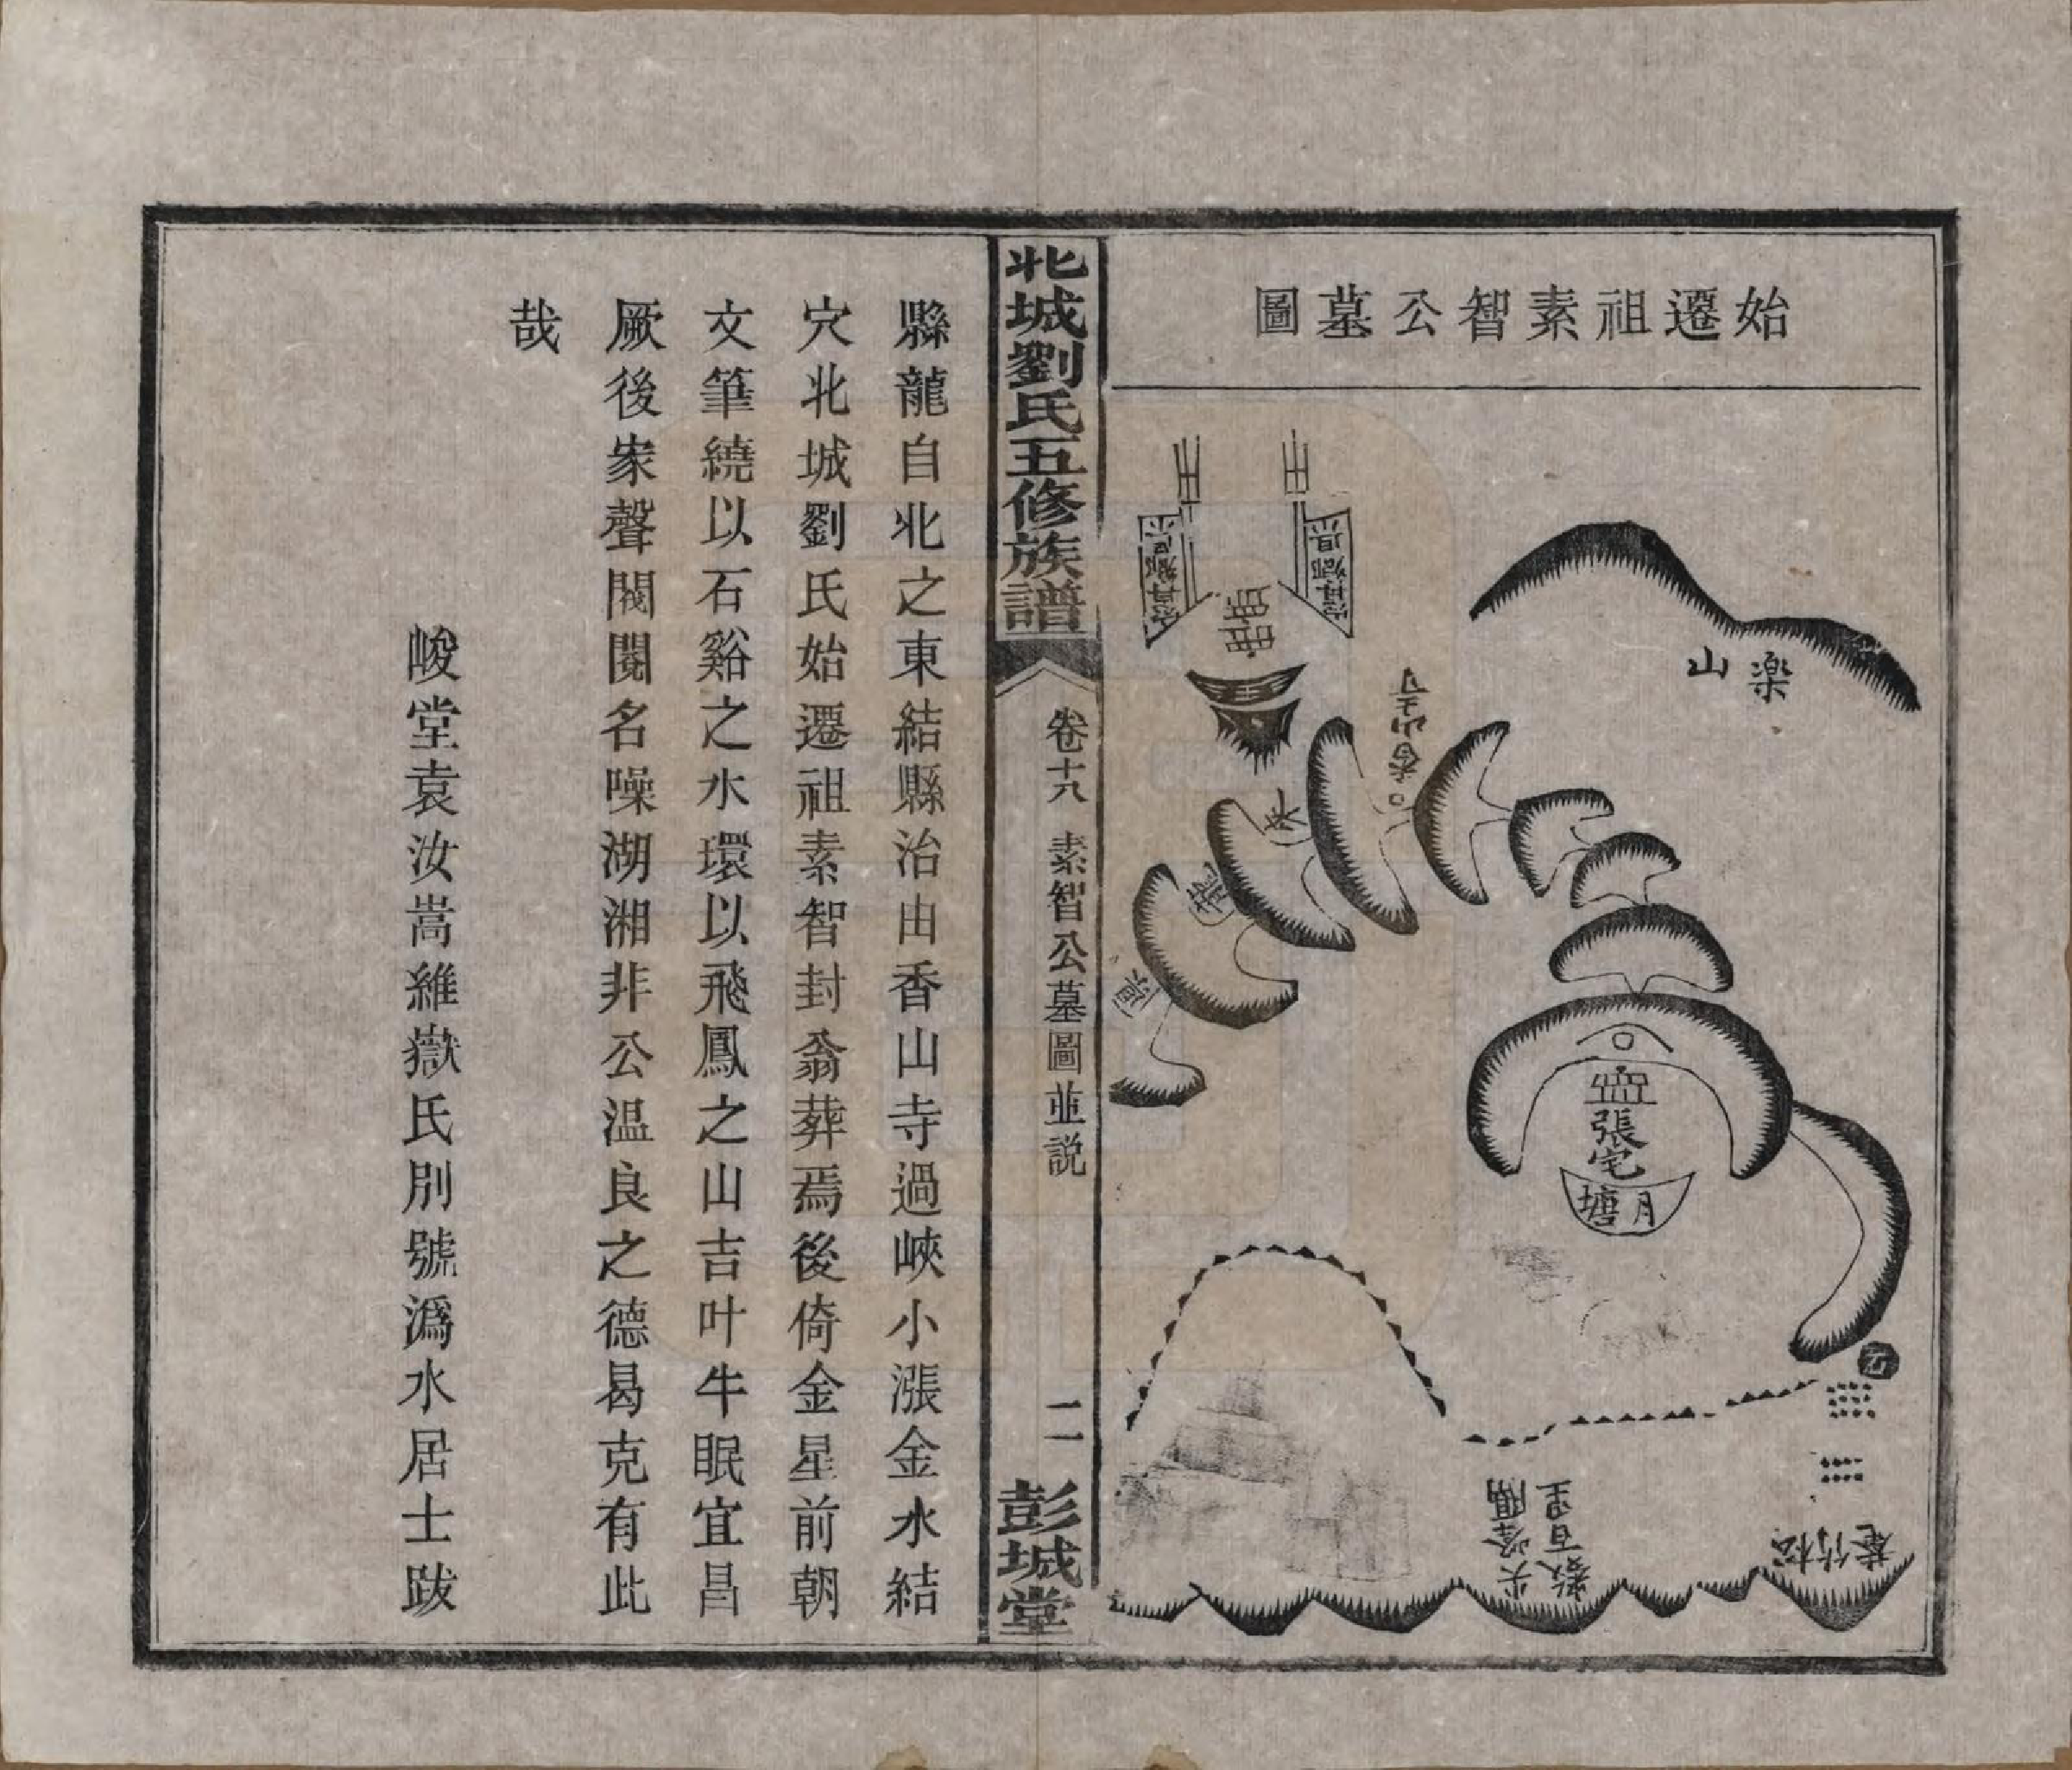 始遷祖素智公墓圖
樂山
來
龍
過
張宅
月塘
數百里
北城劉氏五修族譜
卷十八 素智公墓圖並説
二
彭城堂
縣龍自北之東結縣治由香山寺過峽小漲金水結
穴北城劉氏始遷祖素智封翁葬焉後倚金星前朝
文筆繞以石谿之水環以飛鳳之山吉叶牛眠宜昌
厥後家聲閥閱名噪湖湘非公温良之德曷克有此
哉
峻堂袁汝嵩維嶽氏別號潙水居士跋